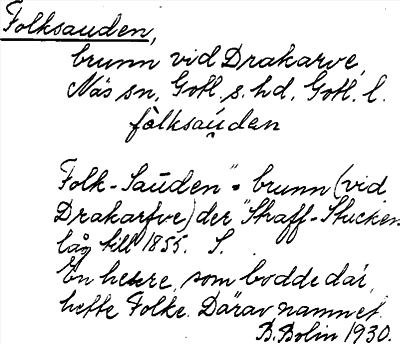 Folksauden,
brunn vid Drakarve,
Näs sn, Gotl. s. hd, Gotl. l.
fòlksaúden
Folk-Saŭden" = brunn (vid
Drakarfve) der "Skaff-Stucken
låg till 1855. S.
En herre, som bodde där,
hette Folke. Därav namnet.
B. Bolin 1930.